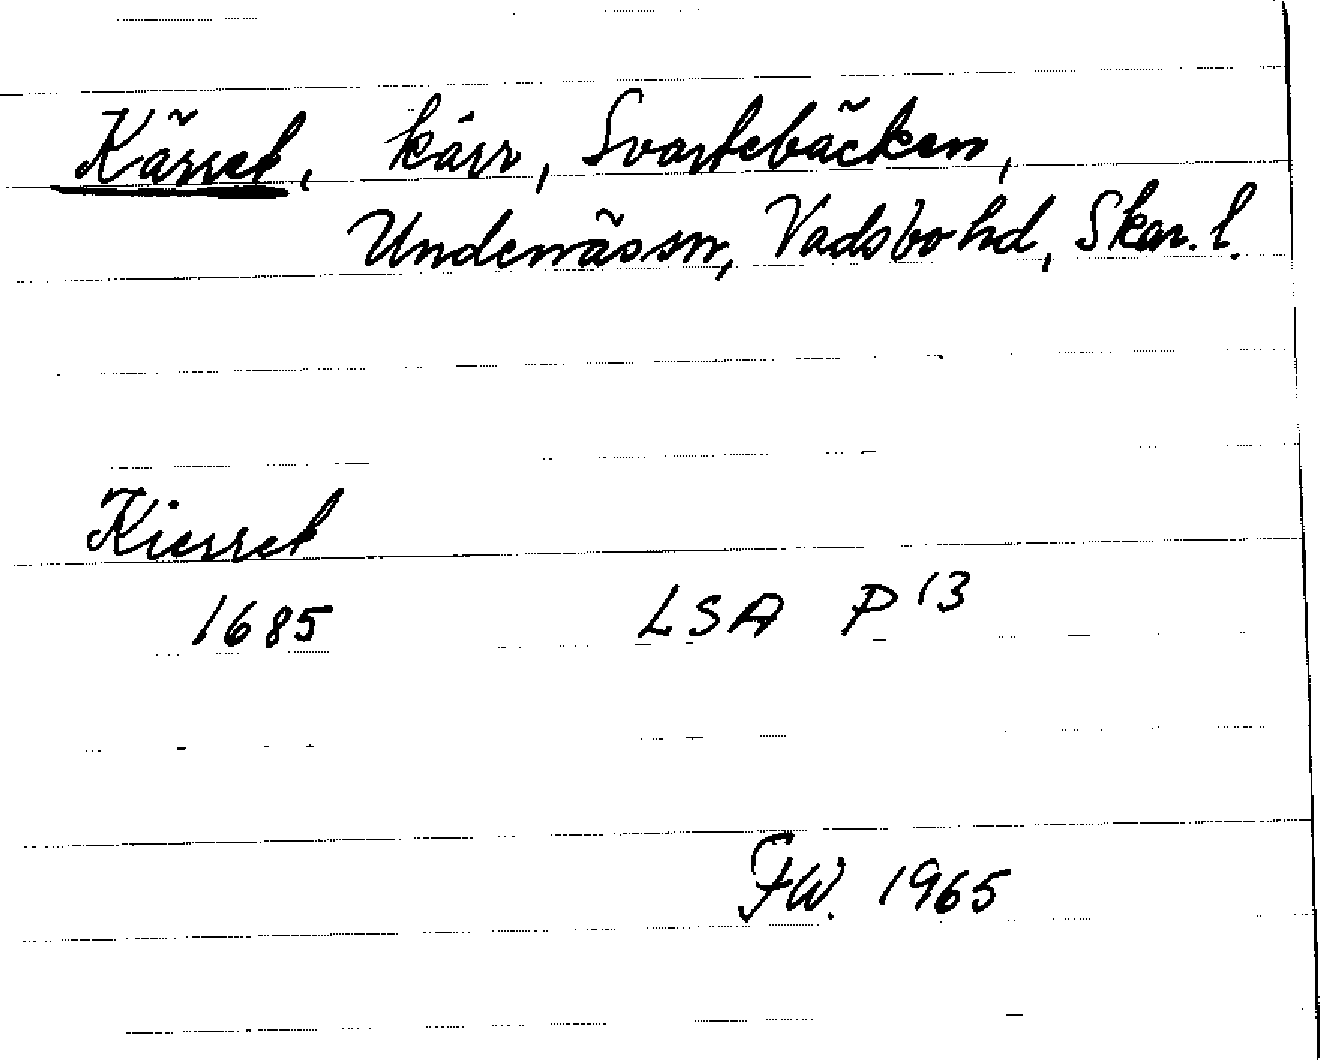 Kärret, kärr, Svartebäcken,
Undenäs sn, Vadsbo hd, Skar. l.
Kierret
1685 LSA P 13
FW. 1965